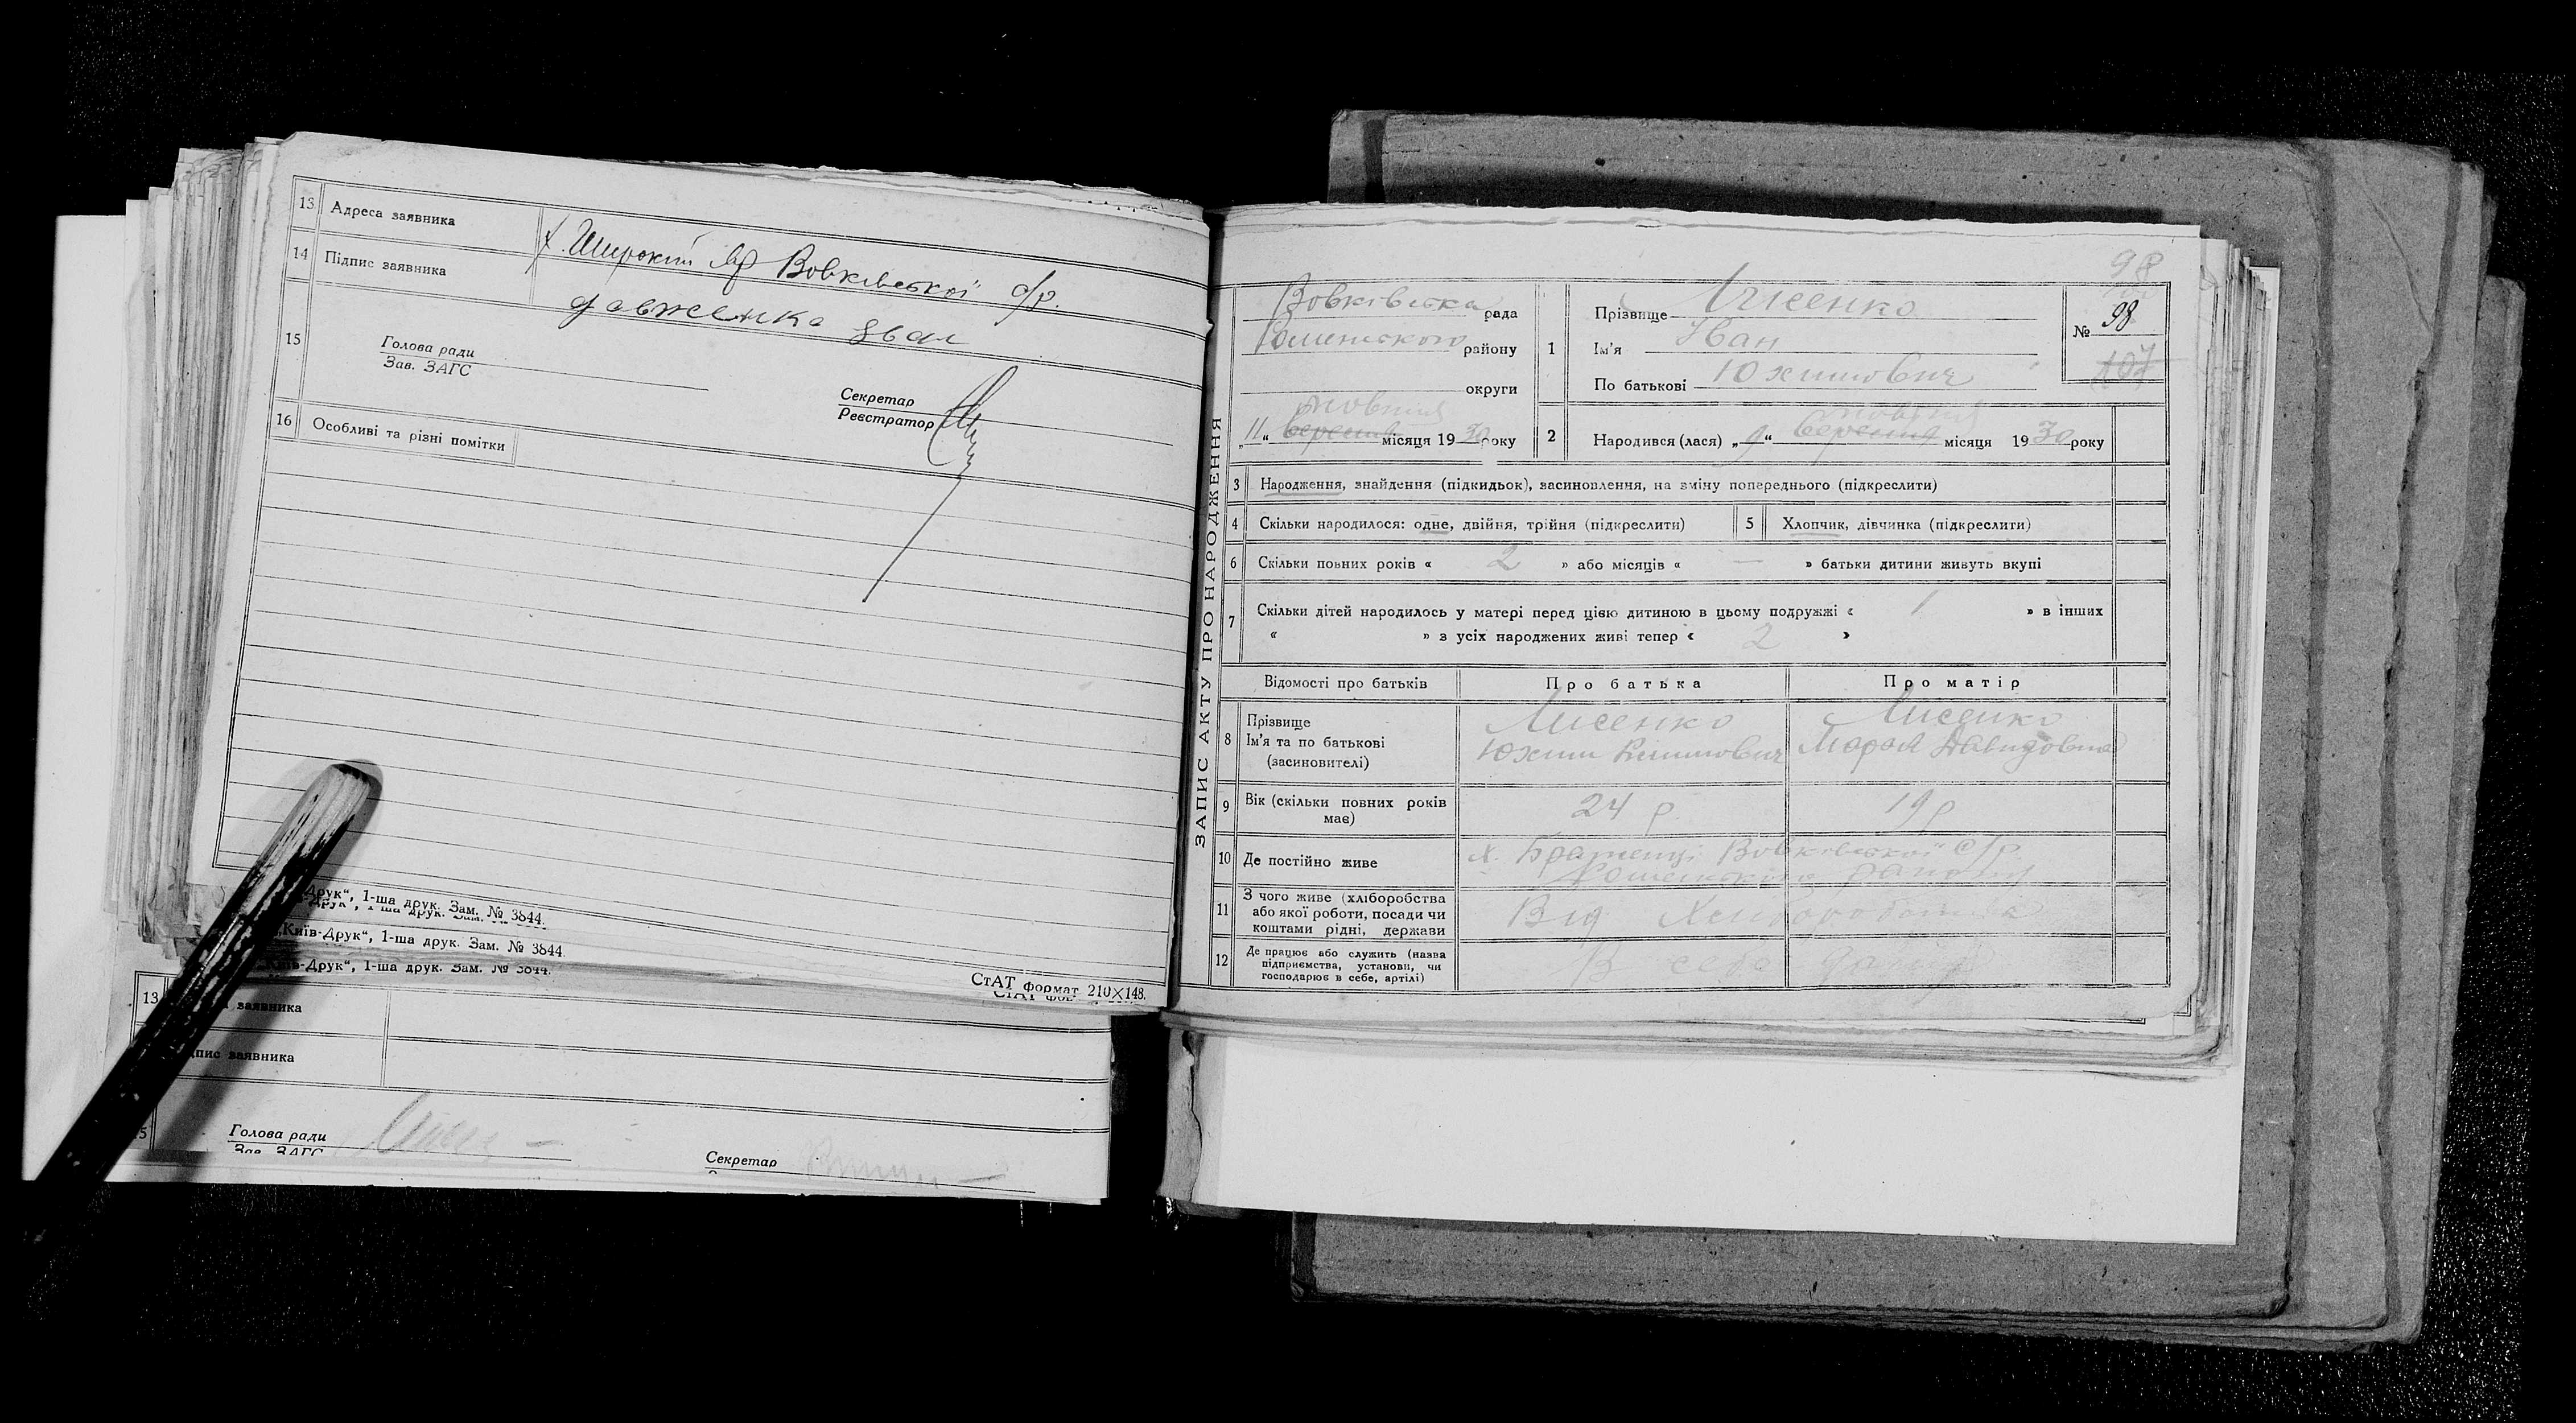 13 Адреса заявника х. Широкий Яр Вовківської с/р.
14 Підпис заявника Довженко Іван
15
Голова ради
Зав. ЗАГС
Секретар
Реєстратор
16 Особливі та різні помітки
Друк“, 1-ша друк. Зам. № 3844.
„Київ-Друк“, 1-ша друк. Зам. № 3844.
Друк“, 1-ша друк. Зам. № 3844.
СтАТ формат 210×148.
13 заявника
заявника
Голова ради
Зав. ЗАГС
Секретар
98
ЗАПИС АКТУ ПРО НАРОДЖЕННЯ
Вовківська рада
Роменського району
округи
жовтня
„11“ вересня місяця 1930 року
1
Прізвище Лисенко
Ім'я Іван
По батькові Юхимович
№ 98
107
жовтня
2 Народився (лася) „9“ вересня місяця 1930 року
3 Народження, знайдення (підкидьок), засиновлення, на зміну попереднього (підкреслити)
4 Скільки народилося: одне, двійня, трійня (підкреслити) 5 Хлопчик, дівчинка (підкреслити)
6 Скільки повних років « 2 » або місяців « — » батьки дитини живуть вкупі
7 Скільки дітей народилось у матері перед цією дитиною в цьому подружжі « 1 » в інших
« » з усіх народжених живі тепер « 2 »
Відомості про батьків Про батька Про матір
8 Прізвище Лисенко Лисенко
Ім'я та по батькові Юхим Климович Марія Давидовна
(засиновителі)
9 Вік (скільки повних років має) 24 р. 19 р
10 Де постійно живе х. Вовківської с/р
Роменського району
11 З чого живе (хліборобства
або якої роботи, посади чи
коштами рідні, держави
Від Хліборобства
12 Де працює або служить (назва
підприємства, установи, чи
господарює в себе, артілі)
В